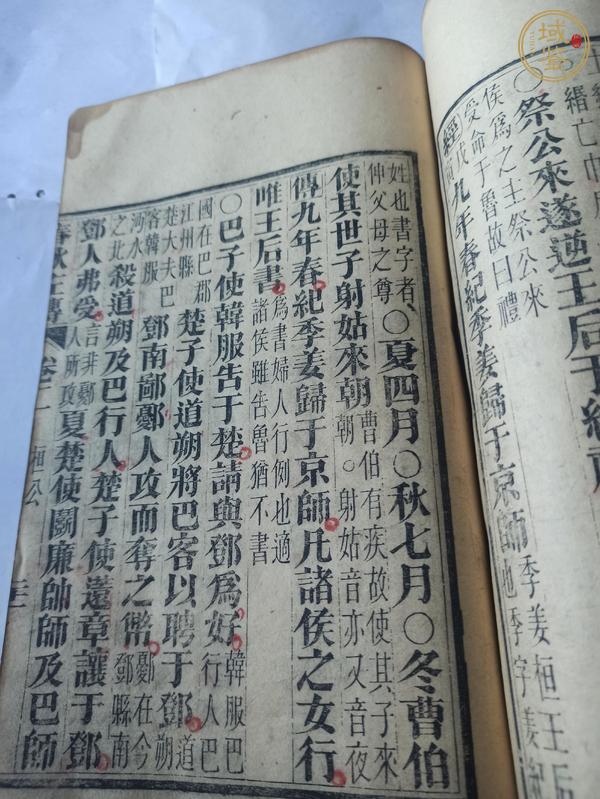 祭公來遂逆王后于紀
侯爲之主祭公來
受命于魯故曰禮
經九年春紀季姜歸于京師
季姜桓王后
也季字姜
姓也書字者
伸父母之尊
○夏四月○秋七月○冬曹伯
使其世子射姑來朝
曹伯有疾故使其子來
朝○射姑音亦又音夜
傳九年春紀季姜歸于京師凡諸侯之女行
唯王后書
爲書婦人行例也適
諸侯雖告魯猶不書
○巴子使韓服告于楚請與鄧爲好
韓服巴
行人巴
國在巴郡
江州縣
楚子使道朔將巴客以聘于鄧
道朔
楚大夫巴
客韓服
鄧南鄙鄾人攻而奪之幣
鄾在今
鄧縣南
沔水
之北
殺道朔及巴行人楚子使薳章讓于鄧
鄧人弗受
言非鄾
人所攻
夏楚使鬬廉帥師及巴師
春秋左傳
卷二
桓公
域鉴